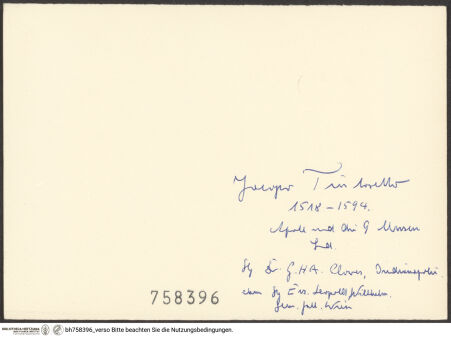 Jacopo Tintoretto
1518-1594.
Apollo und die 9 Musen
Ind.
Slg Dr G.H.A. Clowes, Indianapolis.
ehem Slg Erz. Leopold Wilhelm.
Gem. Gall. Wien
758396
bh758396_verso Bitte beachten Sie die Nutzungsbedingungen.